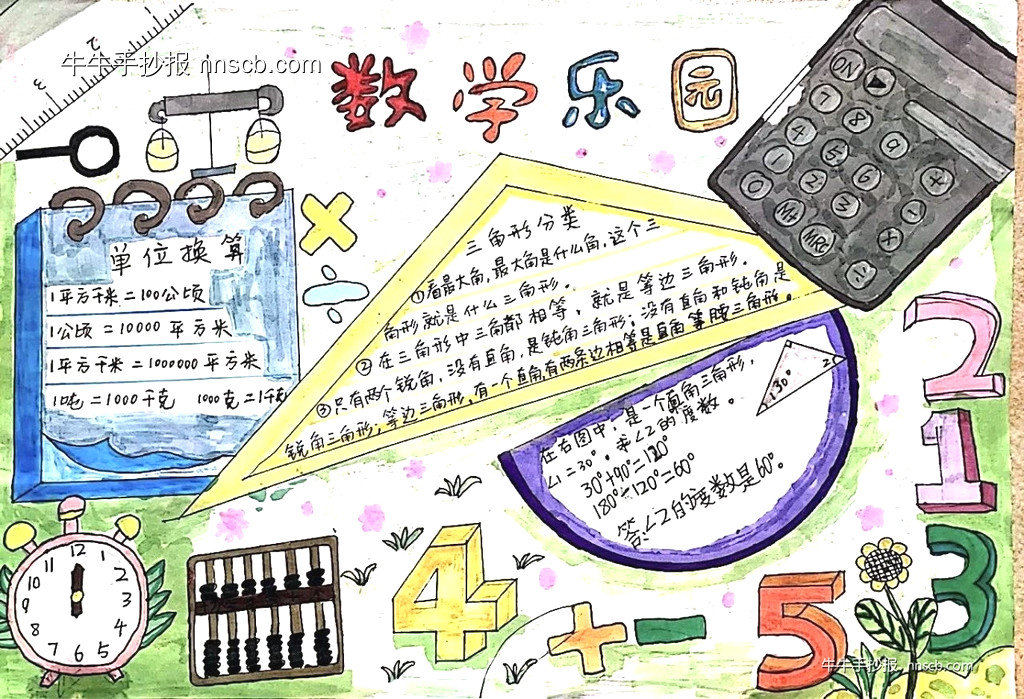 牛牛手抄报 nnscb.com
数学乐园
2
3
ON
7 8 9
4 5 6
1 2 3
0
M+
MRC
单位换算
1平方千米=100公顷
1公顷=10000平方米
1平方千米=1000000平方米
1吨=1000千克 1000克=1千克
三角形分类
①看最大角,最大角是什么角,这个三
角形就是什么三角形。
②在三角形中三角都相等,就是等边三角形。
③只有两个锐角,没有直角,是钝角三角形;没有直角和钝角是
锐角三角形;等边三角形,有一个直角,有两条边相等是直角等腰三角形。
在右图中,是一个直角三角形,
∠1=30°,求∠2的度数。
30°+90°=120°
180°-120°=60°
答:∠2的度数是60°。
30°
1
2
2
1
3
4
5
12
11
1
10
2
9
3
8
4
7
6
5
牛牛手抄报 nnscb.com